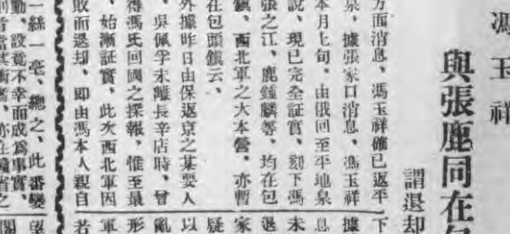 馮玉祥
與張鹿同在包
謂退却
方面消息、馮玉祥確已返平
泉、據張家口消息、馮玉祥
本月上旬、由俄回至平地泉
說、現已完全証實、刻下馮
張之江、鹿鍾麟等、均在包
鎮、西北軍之大本營、亦暫
在包頭鎮云、
外據昨日由保返京之某要人
、吳佩孚未離長辛店時、曾
得馮氏回國之探報、惟至最
、始漸証實、此次西北軍因
敗而退却、即由馮本人親自
一絲一毫、總之、此番變
動、設竟不幸而成爲事實、
下
據
息
未
退
家
疑
以
亂
形
軍
若
望
閣